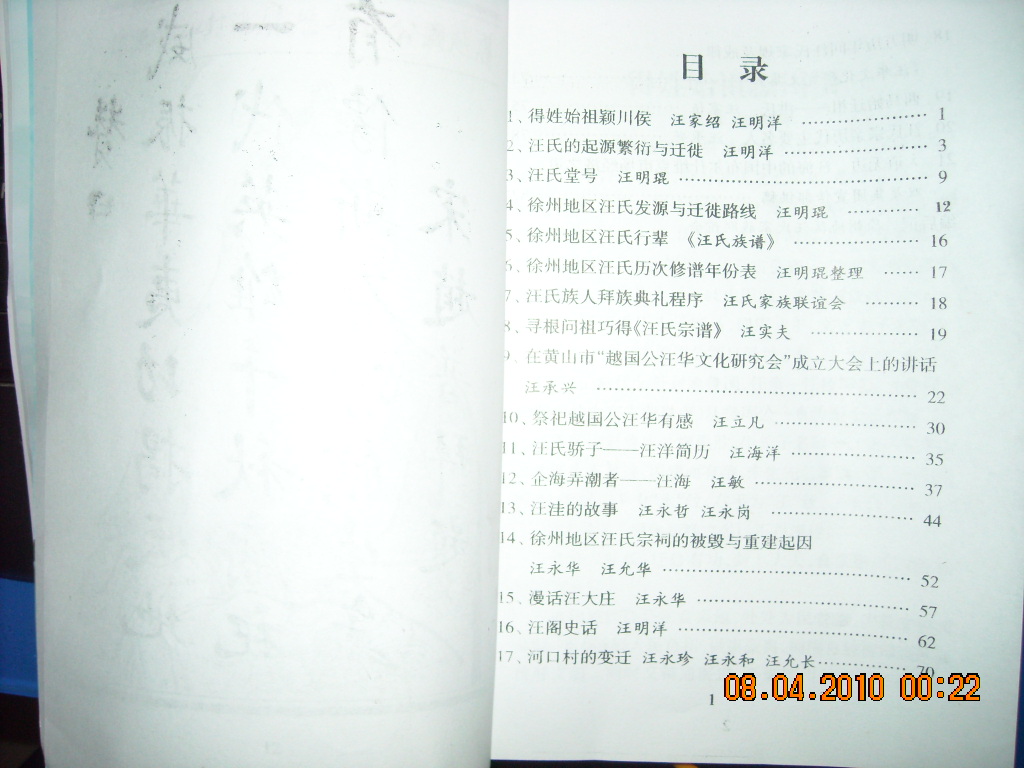 目 录
1、得姓始祖颖川侯 汪家绍 汪明洋 ………… 1
2、汪氏的起源繁衍与迁徙 汪明洋 ………… 3
3、汪氏堂号 汪明琨 ………… 9
4、徐州地区汪氏发源与迁徙路线 汪明琨 ………… 12
5、徐州地区汪氏行辈 《汪氏族谱》 ………… 16
6、徐州地区汪氏历次修谱年份表 汪明琨整理 …… 17
7、汪氏族人拜族典礼程序 汪氏家族联谊会 ……… 18
8、寻根问祖巧得《汪氏宗谱》 汪实夫 ………… 19
9、在黄山市“越国公汪华文化研究会”成立大会上的讲话
汪承兴 ………… 22
10、祭祀越国公汪华有感 汪立凡 ………… 30
11、汪氏骄子——汪洋简历 汪海洋 ………… 35
12、企海弄潮者——汪海 汪敏 ………… 37
13、汪洼的故事 汪永哲 汪永岗 ………… 44
14、徐州地区汪氏宗祠的被毁与重建起因
汪永华 汪允华 ………… 52
15、漫话汪大庄 汪永华 ………… 57
16、汪阁史话 汪明洋 ………… 62
17、河口村的变迁 汪永珍 汪永和 汪允长 ………… 70
1
08.04.2010 00:22